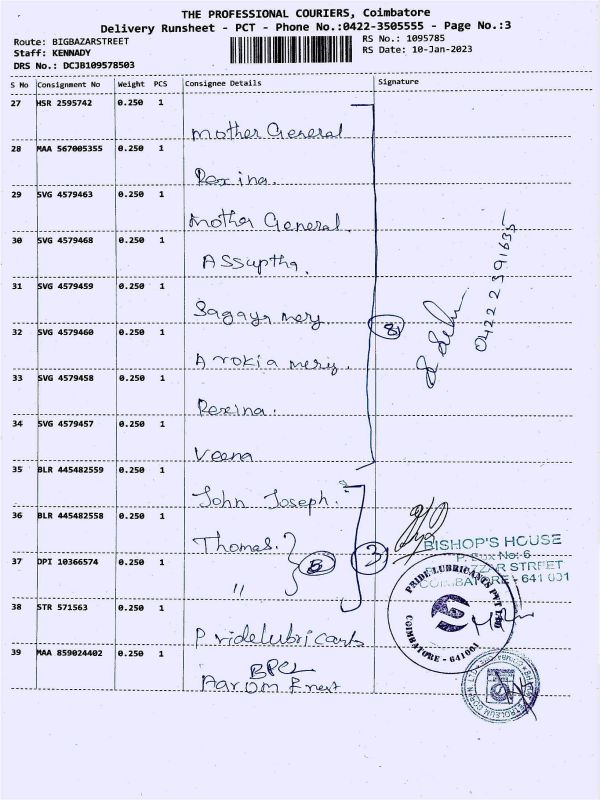 THE PROFESSIONAL COURIERS, Coimbatore
Delivery Runsheet - PCT - Phone No.:0422-3505555 - Page No.:3
Route: BIGBAZARSTREET
Staff: KENNADY
DRS No.: DCJB109578503
RS No.: 1095785
RS Date: 10-Jan-2023
S No Consignment No Weight PCS Consignee Details Signature
27 HSR 2595742 0.250 1
Mother General
28 MAA 567005355 0.250 1
Rexina.
29 SVG 4579463 0.250 1
Mother General.
30 SVG 4579468 0.250 1
ASSuptha.
31 SVG 4579459 0.250 1
Sagaya mery
32 SVG 4579460 0.250 1
8
Arokia mery.
33 SVG 4579458 0.250 1
Rexina.
34 SVG 4579457 0.250 1
Veena
0422 2391635
35 BLR 445482559 0.250 1
John Joseph.
36 BLR 445482558 0.250 1
Thomas.
37 DPI 10366574 0.250 1
"
3
BISHOP'S HOUSE
P. Box No: 6
COIMBATORE - 641 001
38 STR 571563 0.250 1
Pridelubricants
PRIDE LUBRICANTS PVT LTD
COIMBATORE - 641001
39 MAA 859024402 0.250 1
BPCL